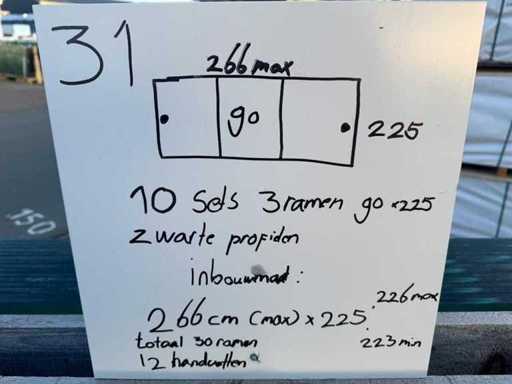 31
266 max
go
225
10 Sets 3 ramen go x225
Zwarte profielen
inbouwmaat:
226 max
266 cm (max) x 225
223 min
totaal 30 ramen
12 handvatten
150